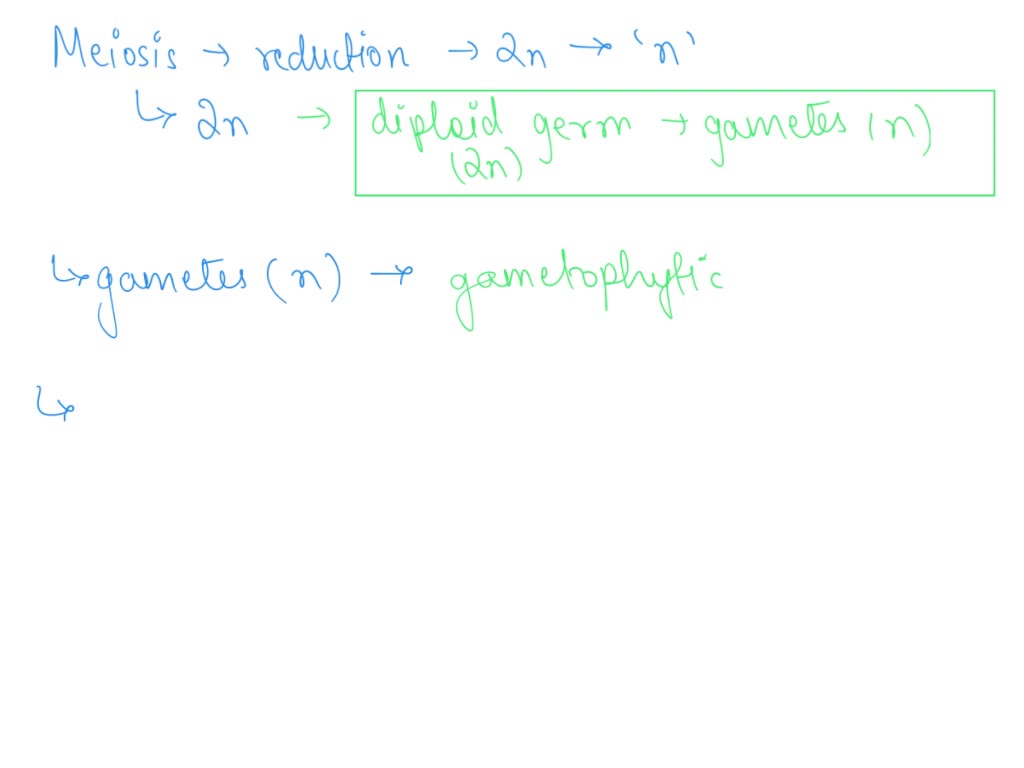 Meiosis → reduction → 2n → 'n'
↳ 2n → diploid germ → gametes (n)
(2n)
↳ gametes (n) → gametophytic
↳